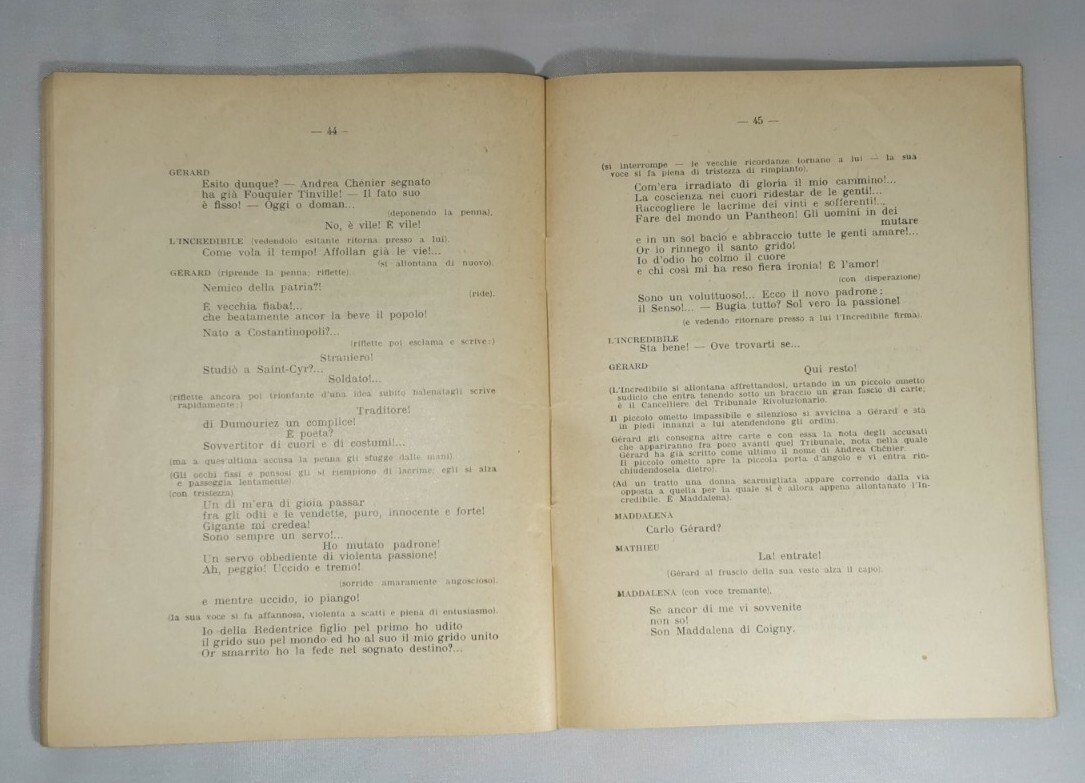 — 44 –
GÉRARD
Esito dunque? — Andrea Chénier segnato
ha già Fouquier Tinville! — Il fato suo
è fisso! — Oggi o doman...
(deponendo la penna).
No, è vile! È vile!
L'INCREDIBILE (vedendolo esitante ritorna presso a lui).
Come vola il tempo! Affollan già le vie!...
(si allontana di nuovo).
GÉRARD (riprende la penna; riflette).
Nemico della patria?!
(ride).
È vecchia fiaba!...
che beatamente ancor la beve il popolo!
Nato a Costantinopoli?...
(riflette poi esclama e scrive:)
Straniero!
Studiò a Saint-Cyr?...
Soldato!...
(riflette ancora poi trionfante d'una idea subito balenatagli scrive
rapidamente:)
Traditore!
di Dumouriez un complice!
È poeta?
Sovvertitor di cuori e di costumi!...
(ma a ques'altima accusa la penna gli sfugge dalle mani).
(Gli occhi fissi e pensosi gli si riempiono di lacrime; egli si alza
e passeggia lentamente).
(con tristezza)
Un dì m'era di gioia passar
fra gli odii e le vendette, puro, innocente e forte!
Gigante mi credea!
Sono sempre un servo!...
Ho mutato padrone!
Un servo obbediente di violenta passione!
Ah, peggio! Uccido e tremo!
(sorride amaramente angoscioso).
e mentre uccido, io piango!
(la sua voce si fa affannosa, violenta a scatti e piena di entusiasmo).
Io della Redentrice figlio pel primo ho udito
il grido suo pel mondo ed ho al suo il mio grido unito
Or smarrito ho la fede nel sognato destino?...
— 45 —
(si interrompe — le vecchie ricordanze tornano a lui — la sua
voce si fa piena di tristezza di rimpianto).
Com'era irradiato di gloria il mio cammino!...
La coscienza nei cuori ridestar de le genti!...
Raccogliere le lacrime dei vinti e sofferenti!...
Fare del mondo un Pantheon! Gli uomini in dei
mutare
e in un sol bacio e abbraccio tutte le genti amare!...
Or io rinnego il santo grido!
Io d'odio ho colmo il cuore
e chi così mi ha reso fiera ironia! È l'amor!
(con disperazione)
Sono un voluttuoso!... Ecco il novo padrone:
il Senso!... — Bugia tutto? Sol vero la passione!
(e vedendo ritornare presso a lui l'Incredibile firma).
L'INCREDIBILE
Sta bene! — Ove trovarti se...
GÉRARD
Qui resto!
(L'Incredibile si allontana affrettandosi, urtando in un piccolo ometto
sudicio che entra tenendo sotto un braccio un gran fascio di carte;
è il Cancelliere del Tribunale Rivoluzionario.
Il piccolo ometto impassibile e silenzioso si avvicina a Gérard e sta
in piedi innanzi a lui atendendone gli ordini.
Gérard gli consegna altre carte e con essa la nota degli accusati
che appariranno fra poco avanti quel Tribunale, nota nella quale
Gérard ha già scritto come ultimo il nome di Andrea Chénier.
Il piccolo ometto apre la piccola porta d'angolo e vi entra rin-
chiudendosela dietro).
(Ad un tratto una donna scarmigliata appare correndo dalla via
opposta a quella per la quale si è allora appena allontanato l'In-
credibile. È Maddalena).
MADDALENA
Carlo Gérard?
MATHIEU
La! entrate!
(Gérard al fruscio della sua veste alza il capo).
MADDALENA (con voce tremante).
Se ancor di me vi sovvenite
non so!
Son Maddalena di Coigny.